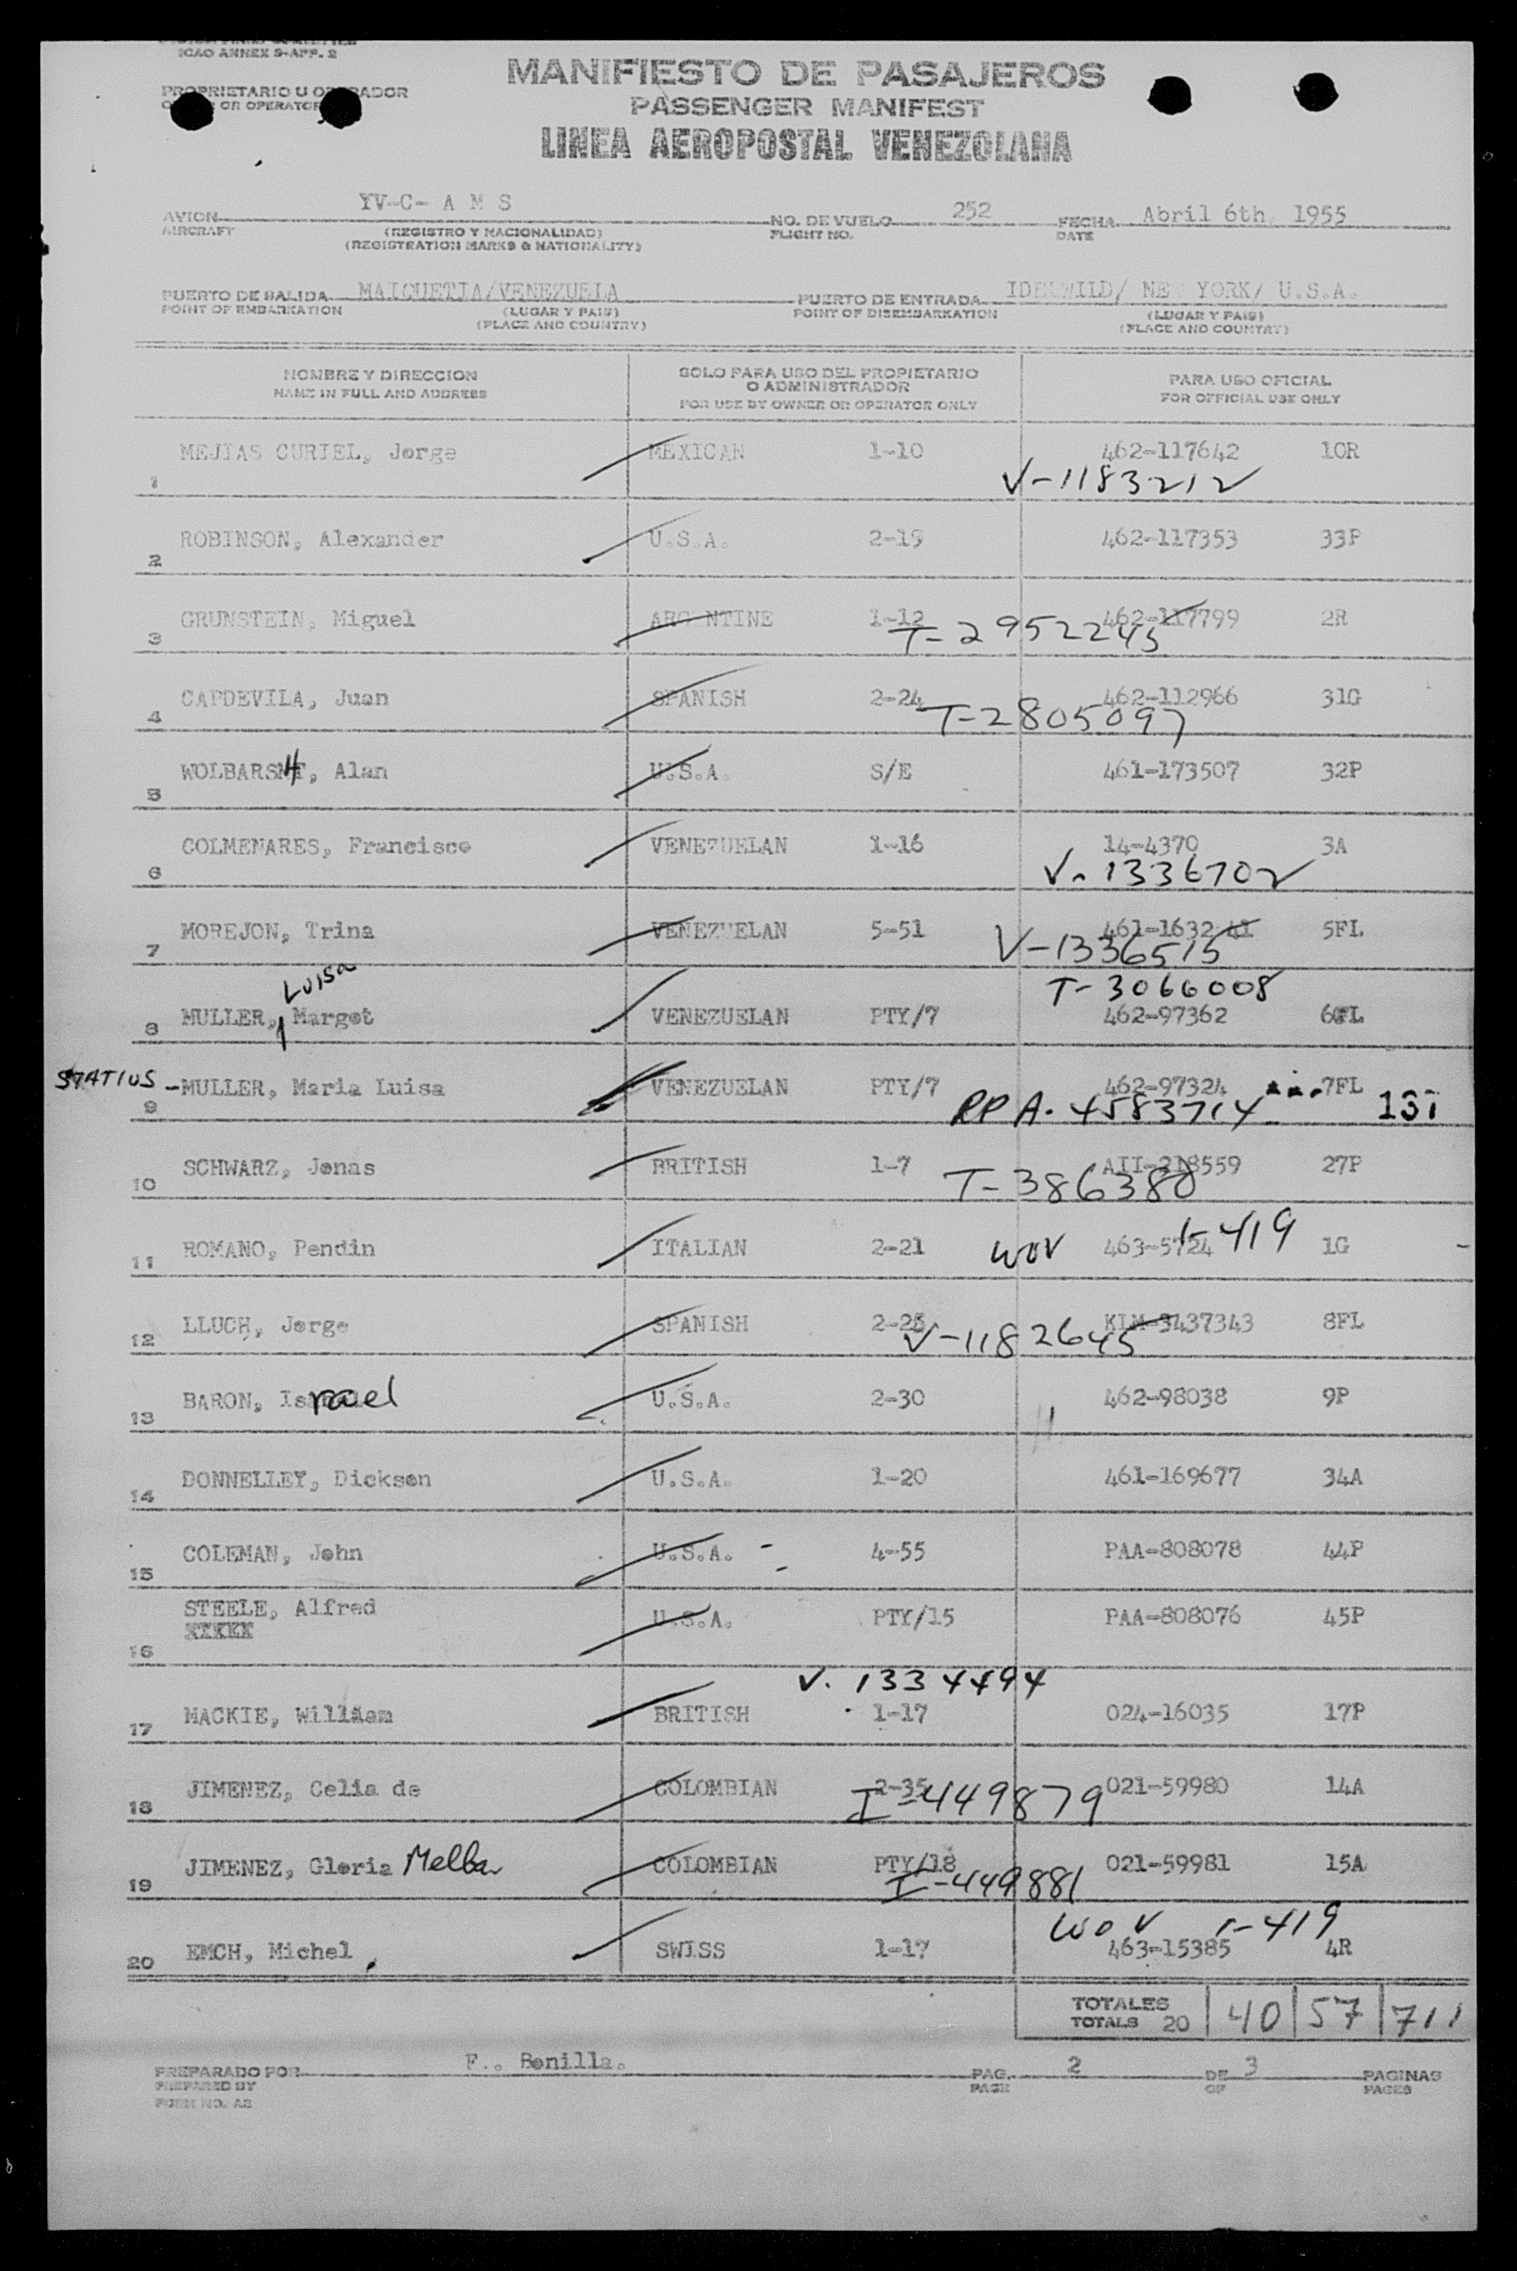 ICAO ANNEX 9-APP. 2
PROPRIETARIO U OPERADOR
OR OPERATOR
MANIFIESTO DE PASAJEROS
PASSENGER MANIFEST
LINEA AEROPOSTAL VENEZOLANA
AVION YV-C- A M S NO. DE VUELO 252 FECHA Abril 6th, 1955
AIRCRAFT (REGISTRO Y NACIONALIDAD) FLIGHT NO. DATE
(REGISTRATION MARKS & NATIONALITY)
PUERTO DE SALIDA MAIQUETIA/VENEZUELA PUERTO DE ENTRADA IDLEWILD/ NEW YORK/ U.S.A.
POINT OF EMBARKATION (LUGAR Y PAIS) POINT OF DISEMBARKATION (LUGAR Y PAIS)
(PLACE AND COUNTRY) (PLACE AND COUNTRY)
NOMBRE Y DIRECCION SOLO PARA USO DEL PROPIETARIO PARA USO OFICIAL
NAME IN FULL AND ADDRESS O ADMINISTRADOR FOR OFFICIAL USE ONLY
FOR USE BY OWNER OR OPERATOR ONLY
MEJIAS CURIEL, Jorge MEXICAN 1-10 462-117642 10R
1 V-1183212
ROBINSON, Alexander U.S.A. 2-19 462-117353 33P
2
GRUNSTEIN, Miguel ARGENTINE 1-12 462-117799 2R
3 T-2952245
CAPDEVILA, Juan SPANISH 2-24 462-112966 31G
4 T-2805097
WOLBARSHT, Alan U.S.A. S/E 461-173507 32P
5
COLMENARES, Francisco VENEZUELAN 1-16 14-4370 3A
6 V-1336702
MOREJON, Trina VENEZUELAN 5-51 461-163241 5FL
7 V-1336515
Luisa T-3066008
8 MULLER, Margot VENEZUELAN PTY/7 462-97362 6FL
STATIUS -MULLER, Maria Luisa VENEZUELAN PTY/7 462-97324 7FL
9 RPA-4583714 131
SCHWARZ, Jonas BRITISH 1-7 AII-218559 27P
10 T-386380
ROMANO, Pendin ITALIAN 2-21 WOV 463-5724 1-419 1G
11
LLUCH, Jorge SPANISH 2-28 KLM-3437343 8FL
12 V-1182645
BARON, Israel U.S.A. 2-30 462-98038 9P
13
DONNELLEY, Dickson U.S.A. 1-20 461-169677 34A
14
COLEMAN, John U.S.A. 4-55 PAA-808078 44P
15
STEELE, Alfred U.S.A. PTY/15 PAA-808076 45P
XXXXX
16
V. 1334494
MACKIE, William BRITISH 1-17 024-16035 17P
17
JIMENEZ, Celia de COLOMBIAN 2-35 021-59980 14A
18 I-449879
JIMENEZ, Gloria Melba COLOMBIAN PTY/18 021-59981 15A
19 I-449881
WOV 1-419
20 EMCH, Michel SWISS 1-17 463-15385 4R
TOTALES
TOTALS 20 40 57 711
PREPARADO POR F.. Bonilla. PAG. 2 DE 3 PAGINAS
PREPARED BY PAGE OF PAGES
FORM NO. A2